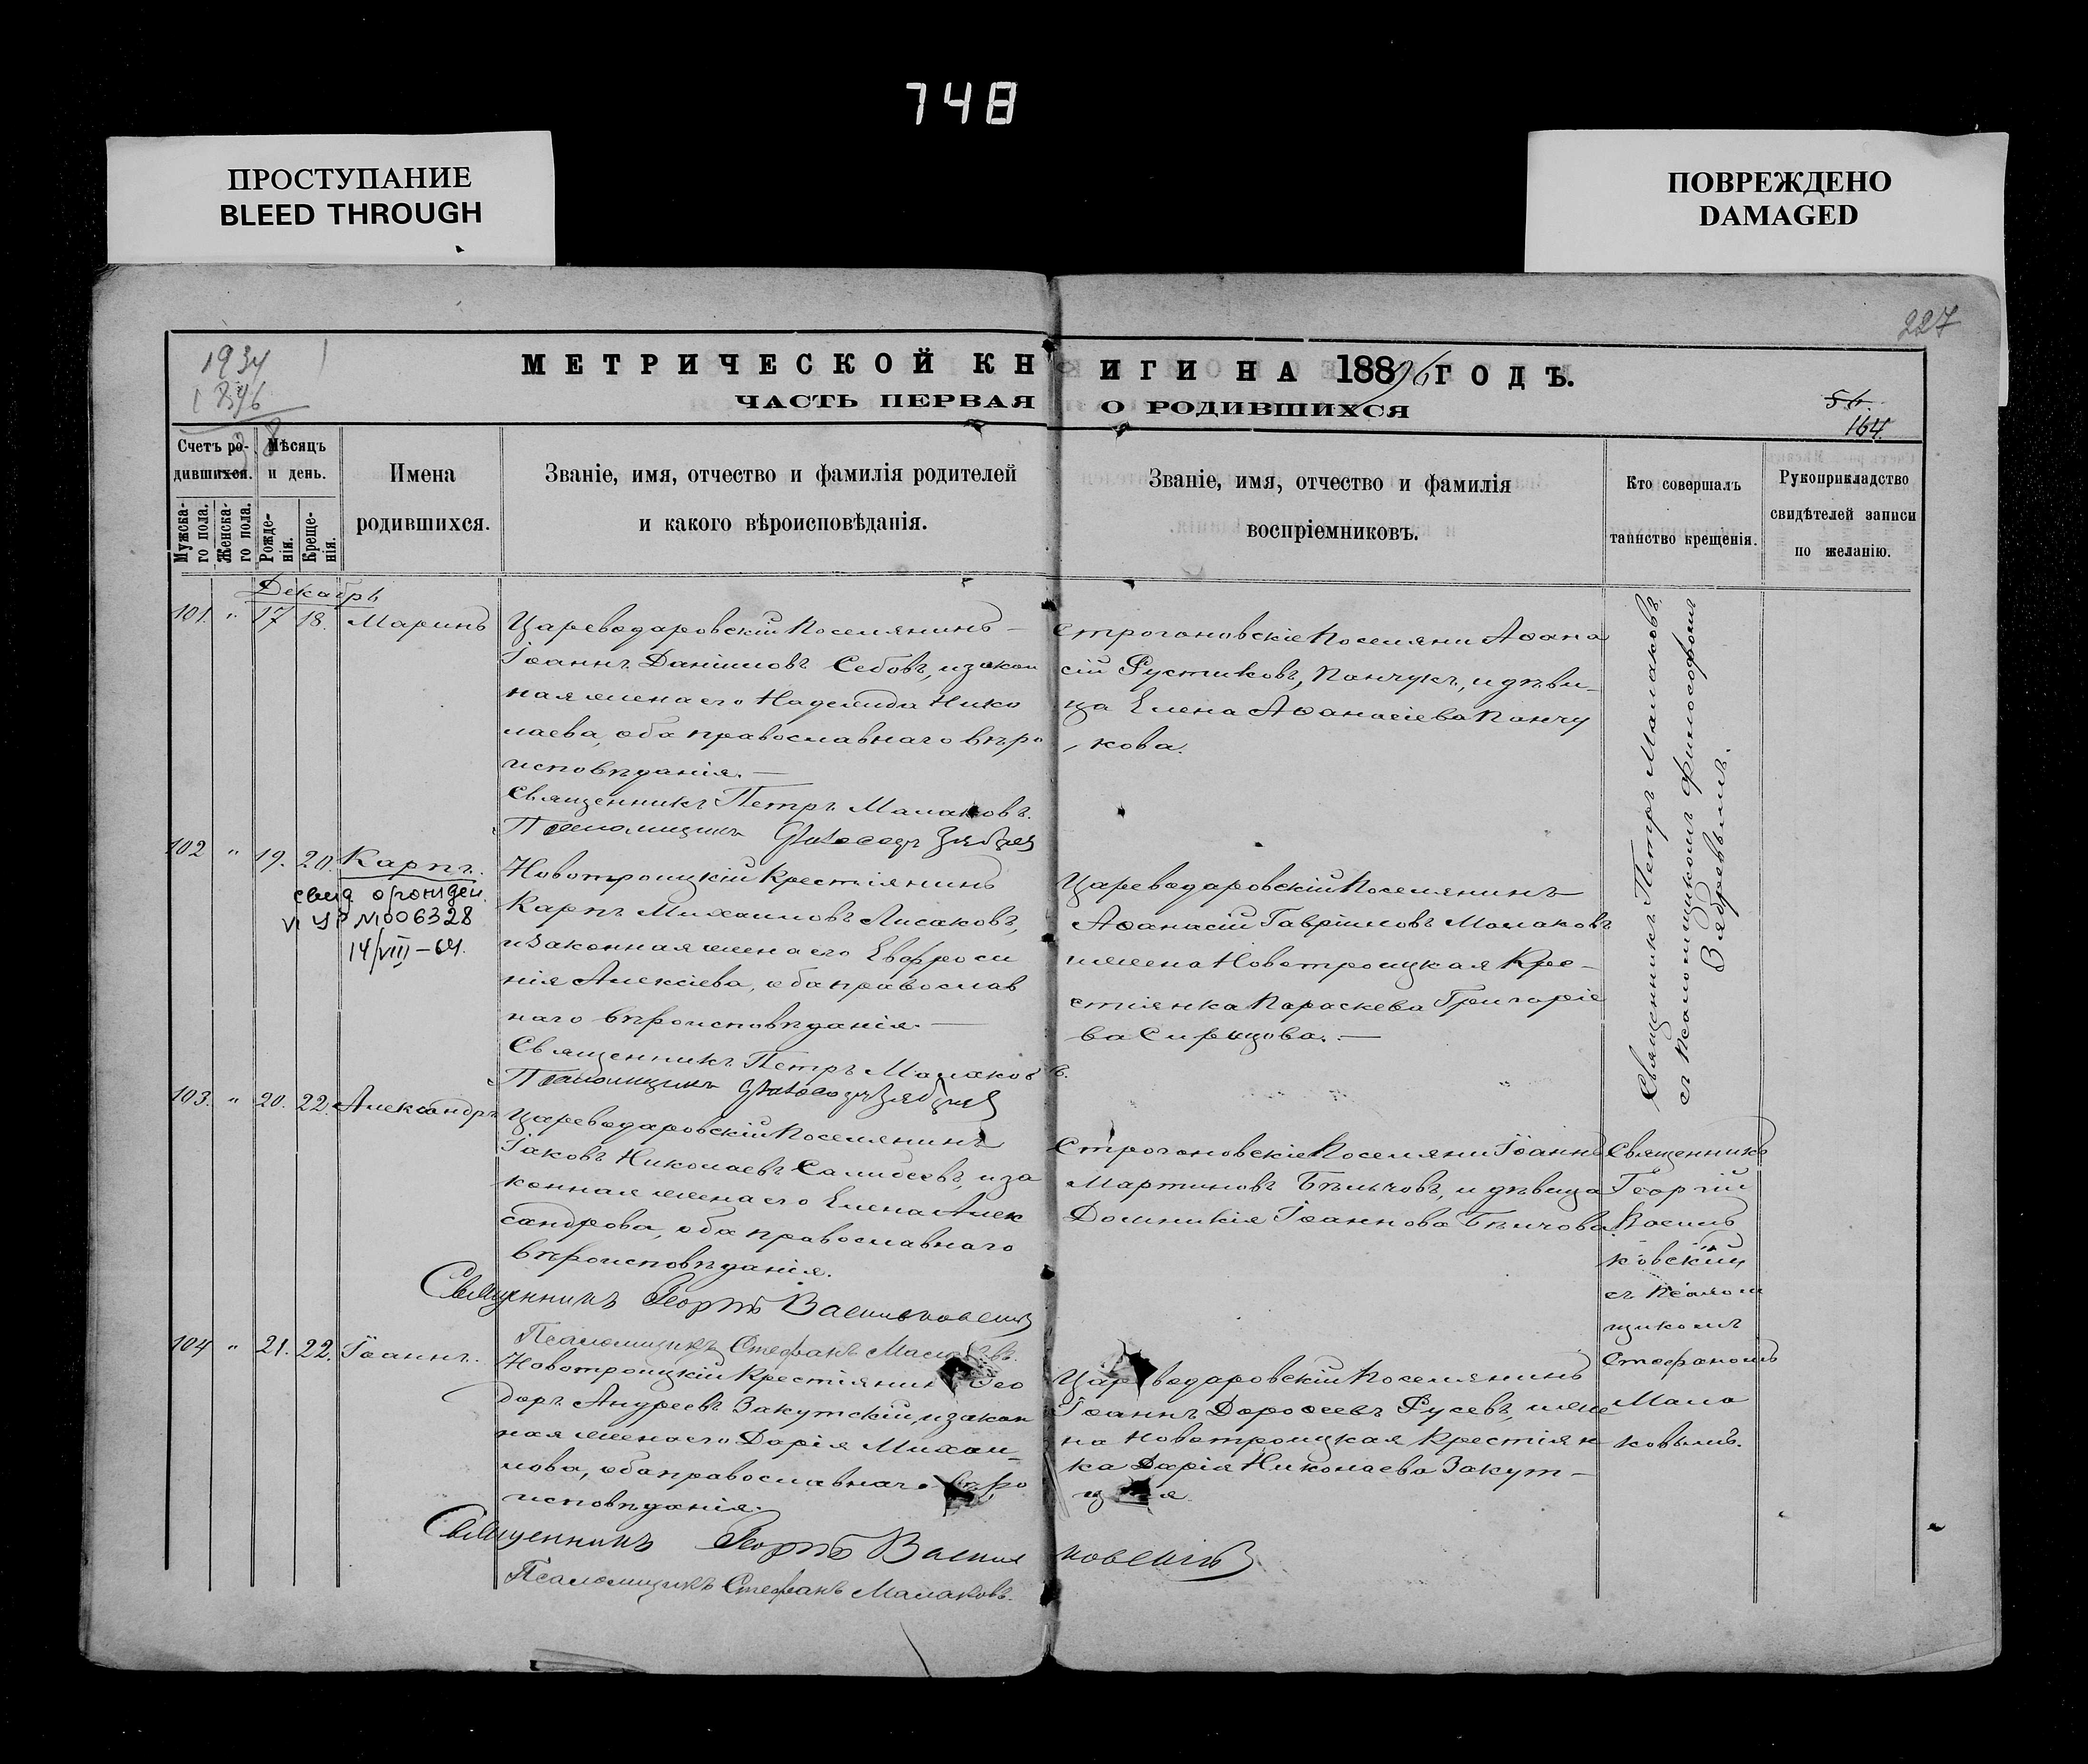 748
ПРОСТУПАНИЕ
BLEED THROUGH
ПОВРЕЖДЕНО
DAMAGED
227
1934
1896
38
МЕТРИЧЕСКОЙ КНИГИ НА 18896 ГОДЪ.
ЧАСТЬ ПЕРВАЯ О РОДИВШИХСЯ
164.
Счетъ ро-
дившихся.
Мужска-
го пола.
Женска-
го пола.
Мѣсяцъ
и день.
Рожде-
нія.
Креще-
нія.
Имена
родившихся.
Званіе, имя, отчество и фамилія родителей
и какого вѣроисповѣданія.
Званіе, имя, отчество и фамилія
воспріемниковъ.
Кто совершалъ
таинство крещенія.
Рукоприкладство
свидѣтелей записи
по желанію.
Декабрь
101. " 17 18. Маринъ
Цареводаровскій Поселянинъ
Іоаннъ Даніиловъ Себовъ, и закон
ная жена его Надежда Нико
лаева, оба православнаго вѣро
исповѣданія. —
Священникъ Петръ Малаковъ.
Псаломщикъ
Строгановскіе Поселяни Аѳана
сій Рустиковъ, Панчукъ, и дѣви-
ца Елена Аѳанасіева Панчу
кова.
Священникъ Петръ Малаковъ
съ Псаломщикомъ
102 " 19. 20. Карпъ.
свид о рожден.
VI УР №006328
14/VIII-64.
Новотроицкій Крестіянинъ
Карпъ Михаиловъ Лисаковъ,
и законная жена его Евфроси
нія Алексіева, оба православ
наго вѣроисповѣданія. —
Священникъ Петръ Малаковъ.
Псаломщикъ
Цареводаровскій Поселянинъ
Аѳанасій Гавріиловъ Малаковъ
и жена Новотроицкая Кре-
стіянка Параскева Григоріе
ва
103. " 20. 22. Александръ
Цареводаровскій Поселянинъ
Іаковъ Николаевъ и за
конная жена его Елена Алек
сандрова, оба православнаго
вѣроисповѣданія.
Священникъ Георгій Васильковскій
Псаломщикъ Стефанъ
Строгановскіе Поселяни Іоаннъ
Мартиновъ и дѣвица
Домникія Іоаннова
Священникъ
Георгій
Василь
ковскій
съ Псалом
щикомъ
Стефаномъ
Мала
ковымъ.
104 " 21. 22. Іоаннъ.
Новотроицкій Крестіянинъ Ѳео
доръ Андреевъ Закутскій, и закон
ная жена его Дарія Михаи-
лова, оба православнаго вѣро
исповѣданія.
Священникъ Георгій Васильковскій
Псаломщикъ Стефанъ Малаковъ.
Цареводаровскій Поселянинъ
Іоаннъ Дороѳеевъ Русевъ, и же
на Новотроицкая Крестіян
ка Дарія Николаева Закут-